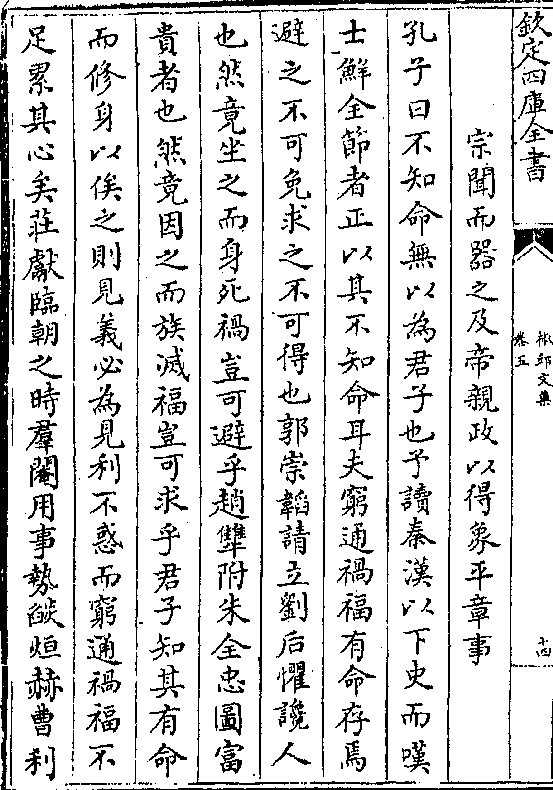 欽定四庫全書
彬郊文集
卷五
十四
宗聞而器之及帝親政以得象平章事
孔子曰不知命無以為君子也予讀秦漢以下史而嘆
士鮮全節者正以其不知命耳夫窮通禍福有命存焉
避之不可免求之不可得也郭崇韜請立劉后懼讒人
也然竟坐之而身死禍豈可避乎趙犨附朱全忠圖富
貴者也然竟因之而族滅福豈可求乎君子知其有命
而修身以俟之則見義必為見利不惑而窮通禍福不
足累其心矣莊獻臨朝之時羣閹用事勢燄烜赫曹利